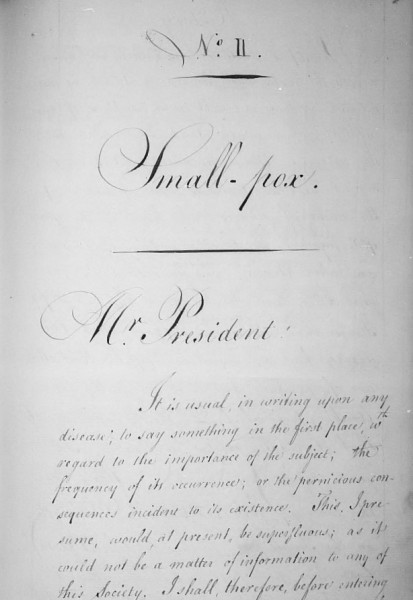 No. II.
Small-pox.
Mr. President!
It is usual, in writing upon any
disease, to say something in the first place, wth
regard to the importance of the subject; the
frequency of its occurrence; or the pernicious con-
sequences incident to its existence. This, I pre-
sume, would, at present, be superfluous; as it
could not be a matter of information to any of
this Society. I shall, therefore, before entering